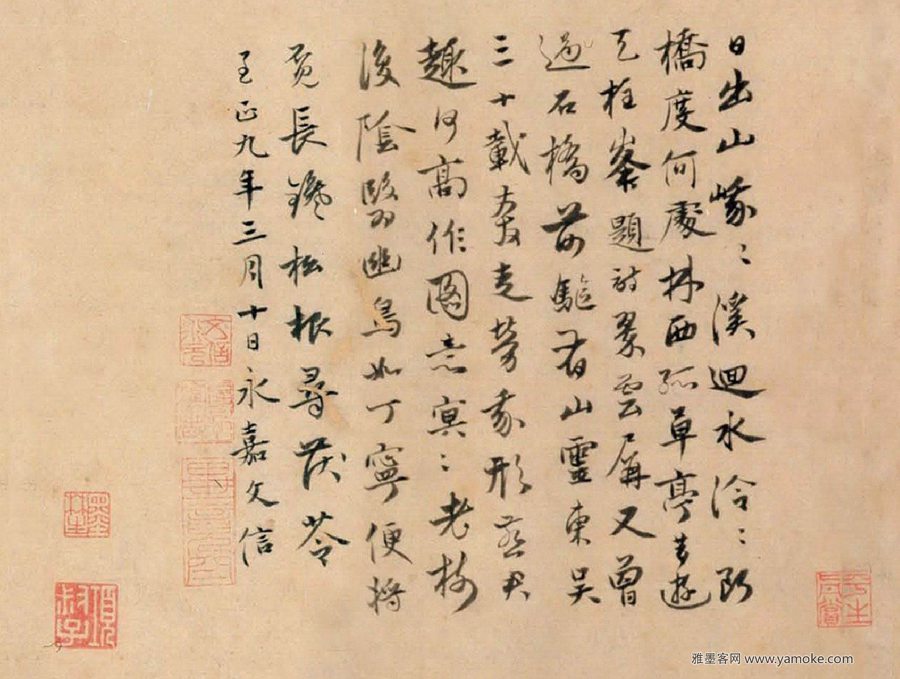 日出山峩〻溪迴水泠〻斷
橋度何處林西孤草亭昔遊
天柱峯題詩翠雲屏又曾
過石橋前驅召山靈東吳
三十載奔走勞我形羨君
趣何高作圖意冥〻老樹
後陰翳幽鳥如丁寧便將
荷長鑱松根尋茯苓
至正九年三月十日永嘉文信
項叔子
雅墨客网 www.yamoke.com